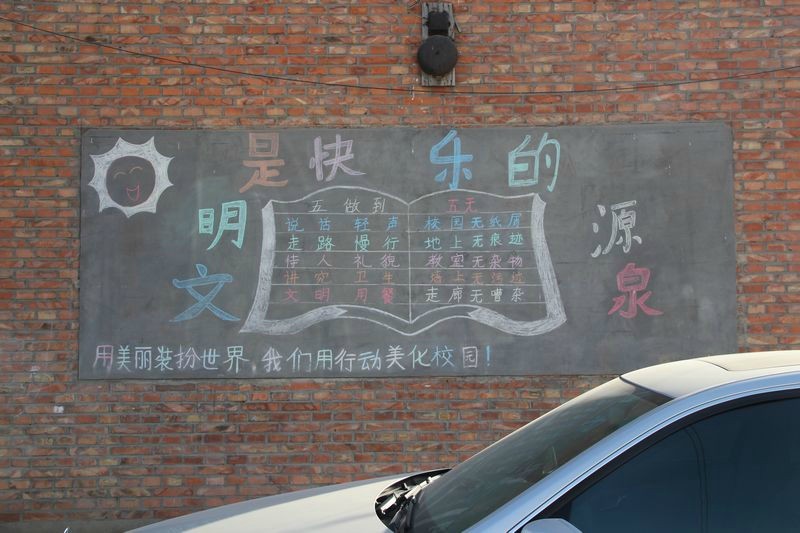 文明是快乐的源泉
五做到
说话轻声
走路慢行
待人礼貌
讲究卫生
文明用餐
五无
校园无纸屑
地上无痕迹
教室无杂物
墙上无污迹
走廊无嘈杂
用美丽装扮世界 我们用行动美化校园!